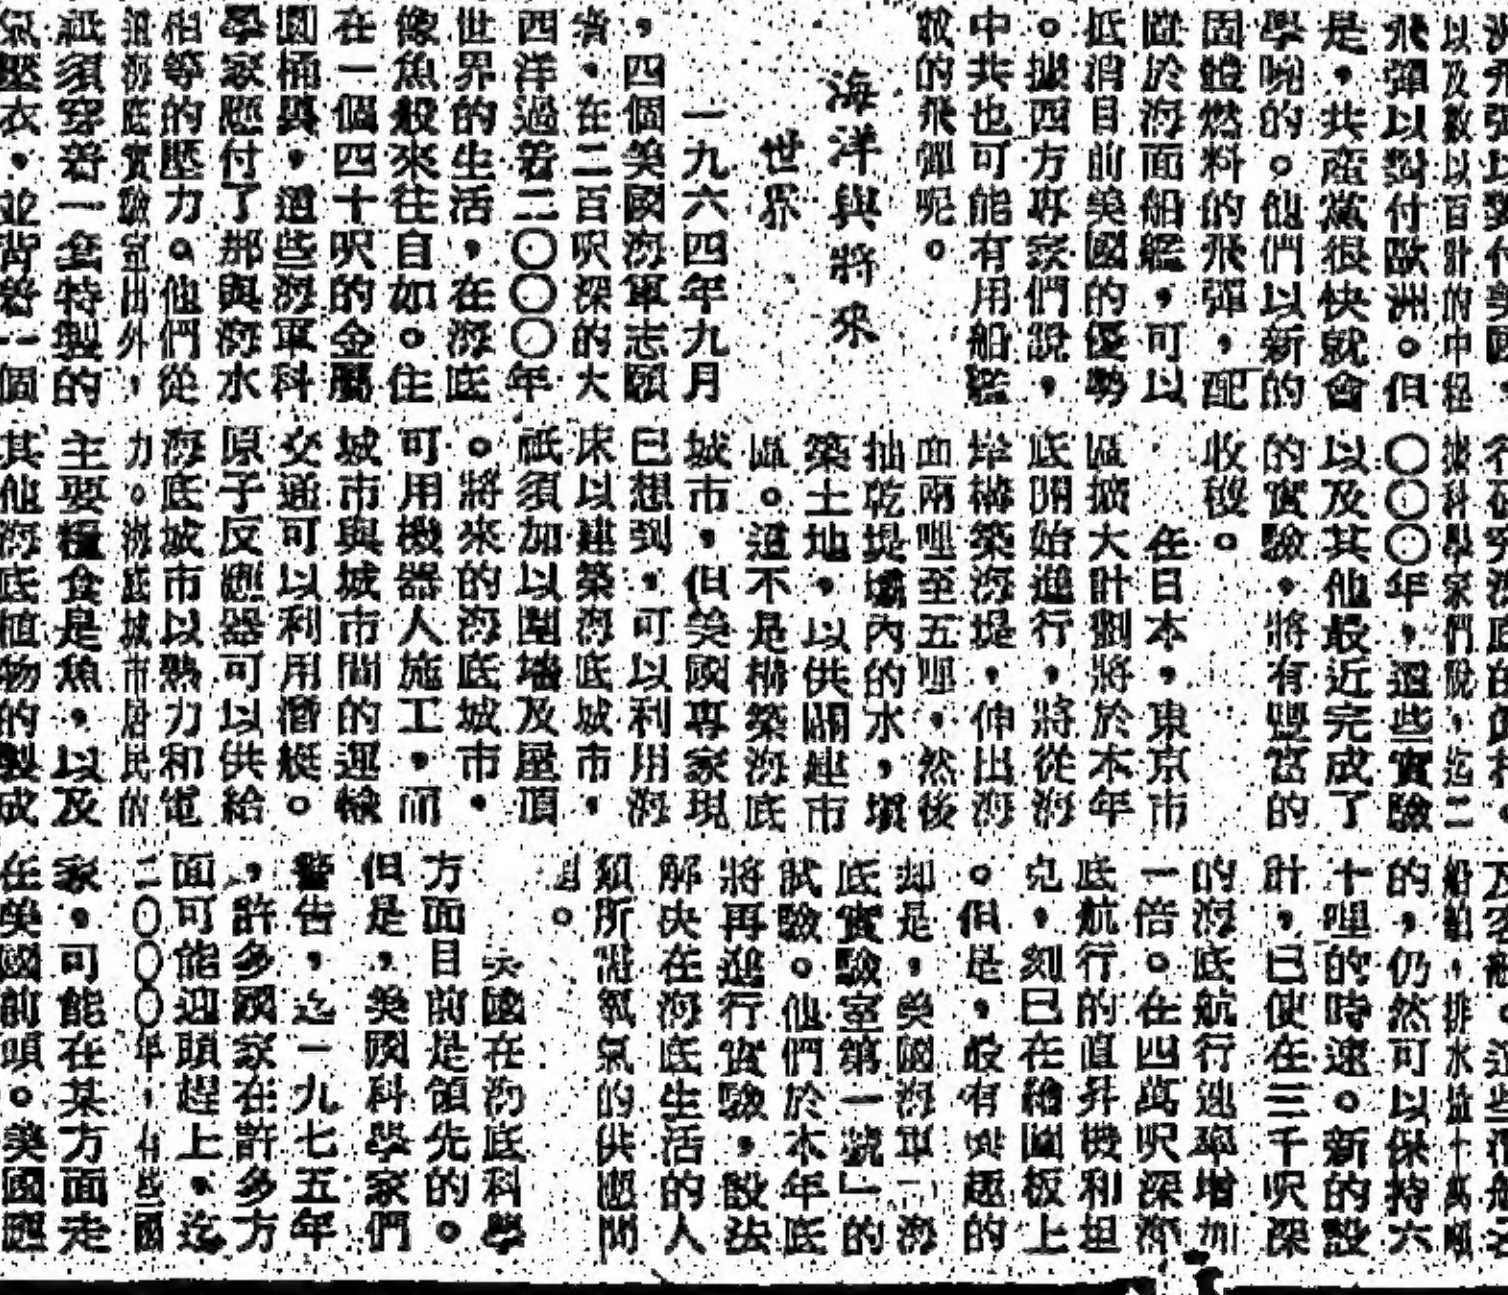 以及數以百計的中程
飛彈以對付歐洲。但
是，共產黨很快就會
學曉的。他們以新的
固體燃料的飛彈，配
置於海面船艦，可以
抵消目前美國的優勢
。據西方專家們說，
中共也可能有用船艦
載的飛彈呢。
海洋與將來
世界
一九六四年九月
，四個美國海軍志願
者，在二百呎深的大
西洋過着二〇〇〇年
世界的生活，在海底
像魚般來往自如。住
在一個四十呎的金屬
圓桶與，這些海軍科
學家應付了那與海水
相等的壓力。他們從
這海底實驗室出外，
祇須穿着一套特製的
氣壓衣，並背着一個
據科學家們說，迄二
〇〇〇年，這些實驗
以及其他最近完成了
的實驗，將有豐富的
收穫。
在日本，東京市
區擴大計劃將於本年
底開始進行，將從海
岸構築海堤，伸出海
面兩哩至五哩，然後
抽乾堤壩內的水，填
築土地，以供闢建市
區。這不是構築海底
城市，但美國專家現
已想到，可以利用海
床以建築海底城市，
祇須加以圍墻及屋頂
。將來的海底城市，
可用機器人施工，而
城市與城市間的運輸
交通可以利用潛艇。
原子反應器可以供給
海底城市以熱力和電
力。海底城市居民的
主要糧食是魚，以及
其他海底植物的製成
船舶，排水量十萬噸
的，仍然可以保持六
十哩的時速。新的設
計，已使在三千呎深
的海底航行速率增加
一倍。在四萬呎深海
底航行的直升機和坦
克，刻已在繪圖板上
。但是，最有興趣的
却是，美國海軍「海
底實驗室第一號」的
試驗。他們於本年底
將再進行實驗，設法
解決在海底生活的人
類所需氧氣的供應問
題。
美國在海底科學
方面目前是領先的。
但是，美國科學家們
警告，迄一九七五年
，許多國家在許多方
面可能迎頭趕上，迄
二〇〇〇年，有些國
家，可能在某方面走
在美國前頭。美國應